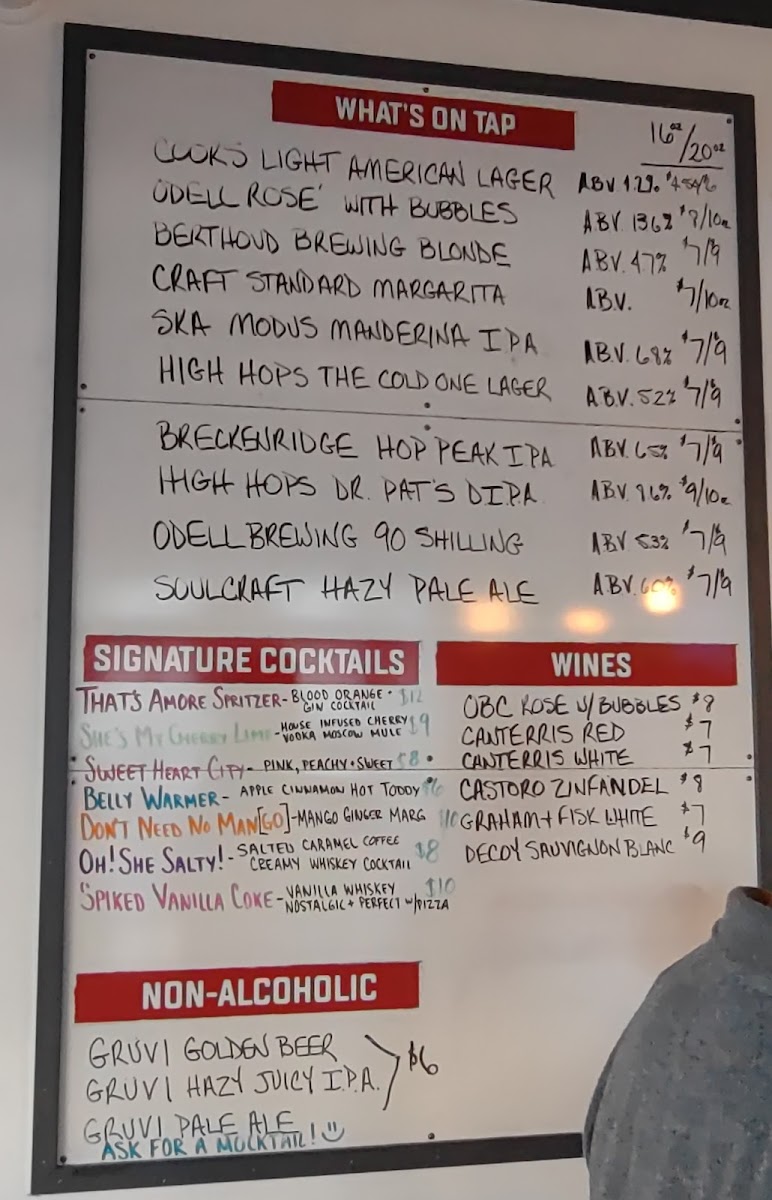 WHAT'S ON TAP
16oz/20oz
COORS LIGHT AMERICAN LAGER ABV. 4.2%
ODELL ROSÉ WITH BUBBLES ABV. 13.6% $8/10oz
BERTHOUD BREWING BLONDE ABV. 4.7% $7/$9
CRAFT STANDARD MARGARITA ABV. $7/10oz
SKA MODUS MANDERINA I.P.A ABV. 6.8% $7/$9
HIGH HOPS THE COLD ONE LAGER ABV. 5.2% $7/$9
BRECKENRIDGE HOP PEAK I.P.A ABV. 6.5% $7/$9
HIGH HOPS DR. PAT'S D.I.P.A ABV. 9.6% $9/10oz
ODELL BREWING 90 SHILLING ABV 5.3% $7/$9
SOULCRAFT HAZY PALE ALE ABV. 6.0% $7/$9
SIGNATURE COCKTAILS
THAT'S AMORE SPRITZER - BLOOD ORANGE • $12
GIN COCKTAIL
SHE'S MY CHERRY LIME - HOUSE INFUSED CHERRY $9
VODKA MOSCOW MULE
SWEET HEART CITY - PINK, PEACHY + SWEET $8
BELLY WARMER - APPLE CINNAMON HOT TODDY
DON'T NEED NO MAN[GO] - MANGO GINGER MARG $10
OH! SHE SALTY! - SALTED CARAMEL COFFEE $8
CREAMY WHISKEY COCKTAIL
SPIKED VANILLA COKE - VANILLA WHISKEY $10
NOSTALGIC + PERFECT W/PIZZA
WINES
OBC ROSE W/ BUBBLES $8
CANTERRIS RED $7
CANTERRIS WHITE $7
CASTORO ZINFANDEL $8
GRAHAM + FISK WHITE $7
DECOY SAUVIGNON BLANC $9
NON-ALCOHOLIC
GRUVI GOLDEN BEER
GRUVI HAZY JUICY I.P.A. $6
GRUVI PALE ALE
ASK FOR A MOCKTAIL!